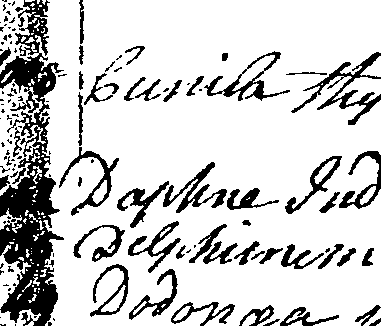 Cunila Thy
Daphne Ind
Delphinium
Dodonæa